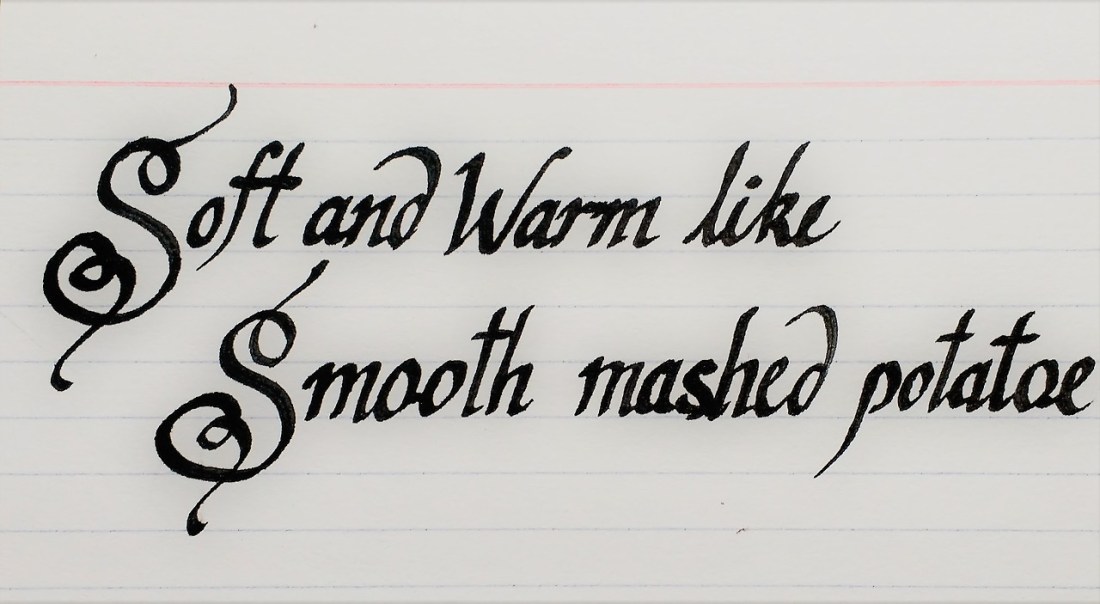 Soft and Warm like
Smooth mashed potatoe